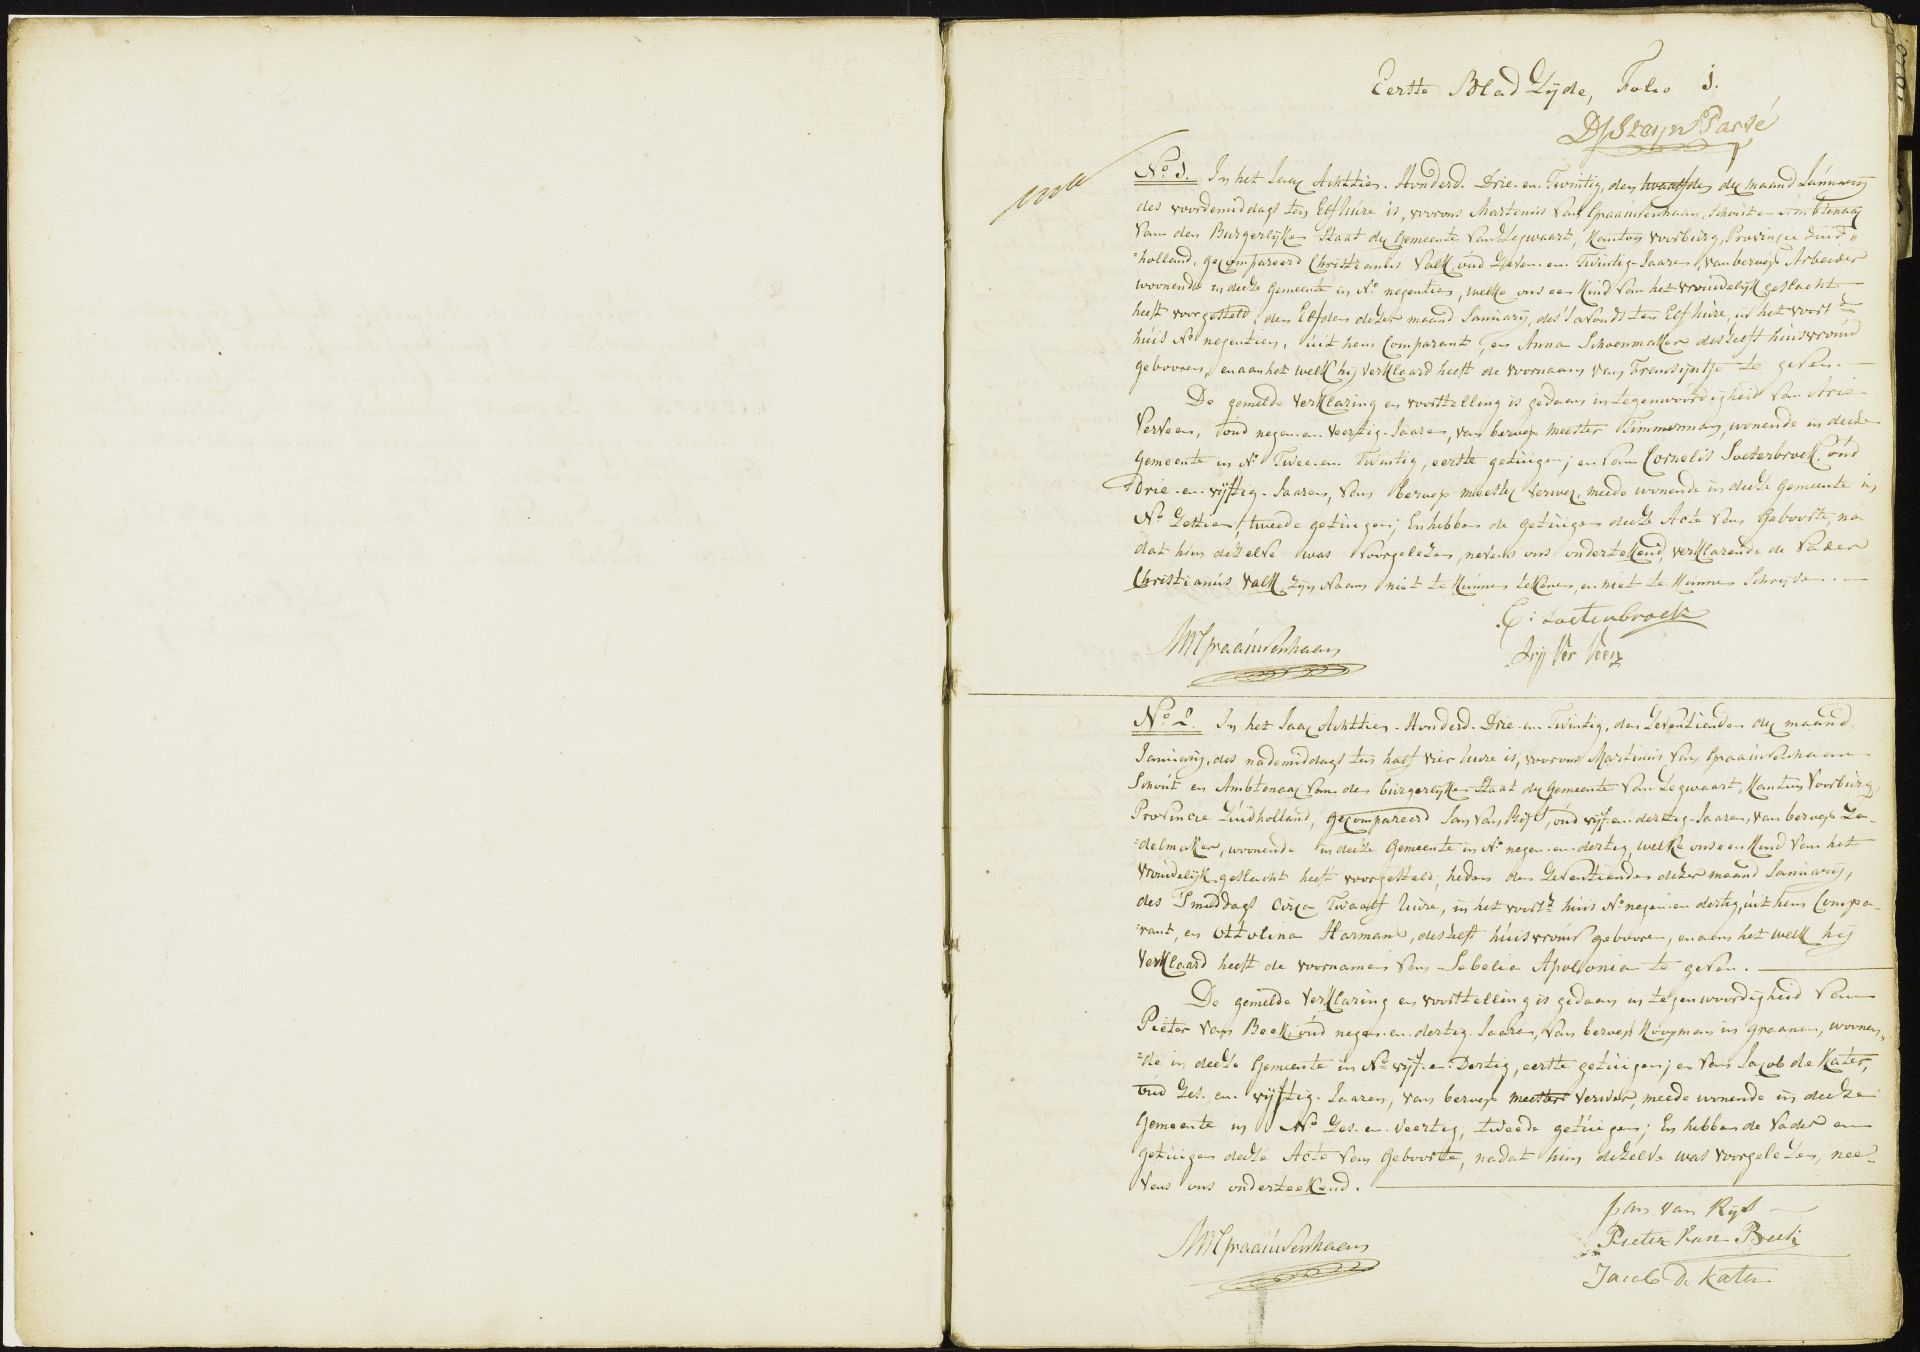 Eerste Blad Zijde, Folio 1.
DJ Steyn Parvé
No. 1. In het Jaar Achttien. Honderd. Drie. en. Twintig, den twaalfden der maand Januarij
des voordemiddags ten Elf huire is, voor ons Martinus van Graauwenhaan, Schout en Ambtenaar
van den Burgerlijken Staat der Gemeente van Zegwaart, kanton voorburg, Provinsie Zuid
=holland, gecompareerd Christianus Valk, oud Zeven. en. Twintig. Jaaren, van beroep Arbeider
woonende in deeze Gemeente in No. negentien, welke ons een Kind van het vrouwelijk geslacht
heeft voorgesteld, den Elfden dezer maand Januarij, des s'avonds ten Elf huire, in het voorsz
huis No. negentien, uit hem Comparant, en Anna Schoenmaker deszelfs huisvrouw
gebooren, en aan het welk hij verklaard heeft de voornaam van Fransijntje te geven.
De gemelde verklaring en voorstelling is gedaan in tegenwoordigheid van Arie
Verveen, oud negen. en. veertig. Jaaren, van beroep meester Timmerman, wonende in deeze
Gemeente in No. Twee. en. Twintig, eerste getuigen; en van Cornelis Soeterbroek, oud
Drie. en. vijftig. Jaaren, van beroep meester Verwer, meede wonende in deeze Gemeente in
No. Zestien, tweede getuigen; En hebben de getuigen deeze Acte van Geboorte, na
dat hun dezelve was voorgelezen, nevens ons ondertekend, verklarende de Vader
Christianus Valk, zijn Naam niet te kunnen tekenen, en niet te kunnen Schrijven.
C: Soetenbroek
MVGraauwenhaan
Arij Ver Veen
No. 2. In het Jaar Achttien. Honderd. Drie. en. Twintig, den Zeventienden der maand
Januarij, des nademiddags ten half vier huire is, voor ons Martinus van Graauwenhaan
Schout en Ambtenaar van den burgerlijken Staat der Gemeente van Zegwaart, kanton Voorburg,
Provincie Zuidholland, gecompareerd Jan van Rijs, oud vijf. en. dertig. Jaaren, van beroep Za-
=delmaker, woonende in deeze Gemeente in No. negen. en. dertig, welke ons een Kind van het
vrouwelijk geslacht heeft voorgesteld, heden den Zeventienden dezer maand Januarij,
des Smiddags Circa Twaalf huire, in het voorsz. huis No. negen en dertig, uit hem Compa-
=rant, en Ottolina Harmans, deszelfs huisvrouw gebooren, en aan het welk hij
verklaard heeft de voornamen van Sebelia Apolonia te geven.
De gemelde verklaring en voorstelling is gedaan in tegenwoordigheid van
Pieter van Beek, oud negen. en. dertig. Jaaren, van beroep Koopman in graanen, woonen-
=de in deeze Gemeente in No. vijf. en. Dertig, eerste getuigen; en van Jacob de Kater,
oud Zes. en. vijftig. Jaaren, van beroep meester Verwer, meede wonende in deeze
Gemeente in No. Zes. en. veertig, tweede getuigen; En hebben de Vader en
getuigen deeze Acte van Geboorte, nadat hun dezelve was voorgelezen, nee-
vens ons onderteekend.
Jan van Rijs
MVGraauwenhaan
Pieter van Beek
Jacob De Kater